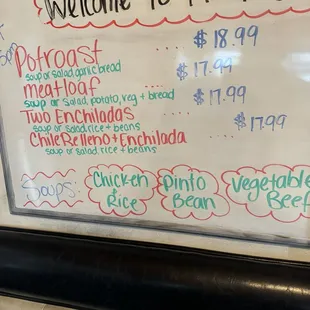 Welcome To
Potroast $18.99
soup or salad, garlic bread
meatloaf $17.99
soup or salad, potato, veg + bread
Two Enchiladas $17.99
soup or salad, rice + beans
Chile Relleno + Enchilada $17.99
soup or salad, rice + beans
Soups: Chicken & Rice
Pinto Bean
Vegetable Beef